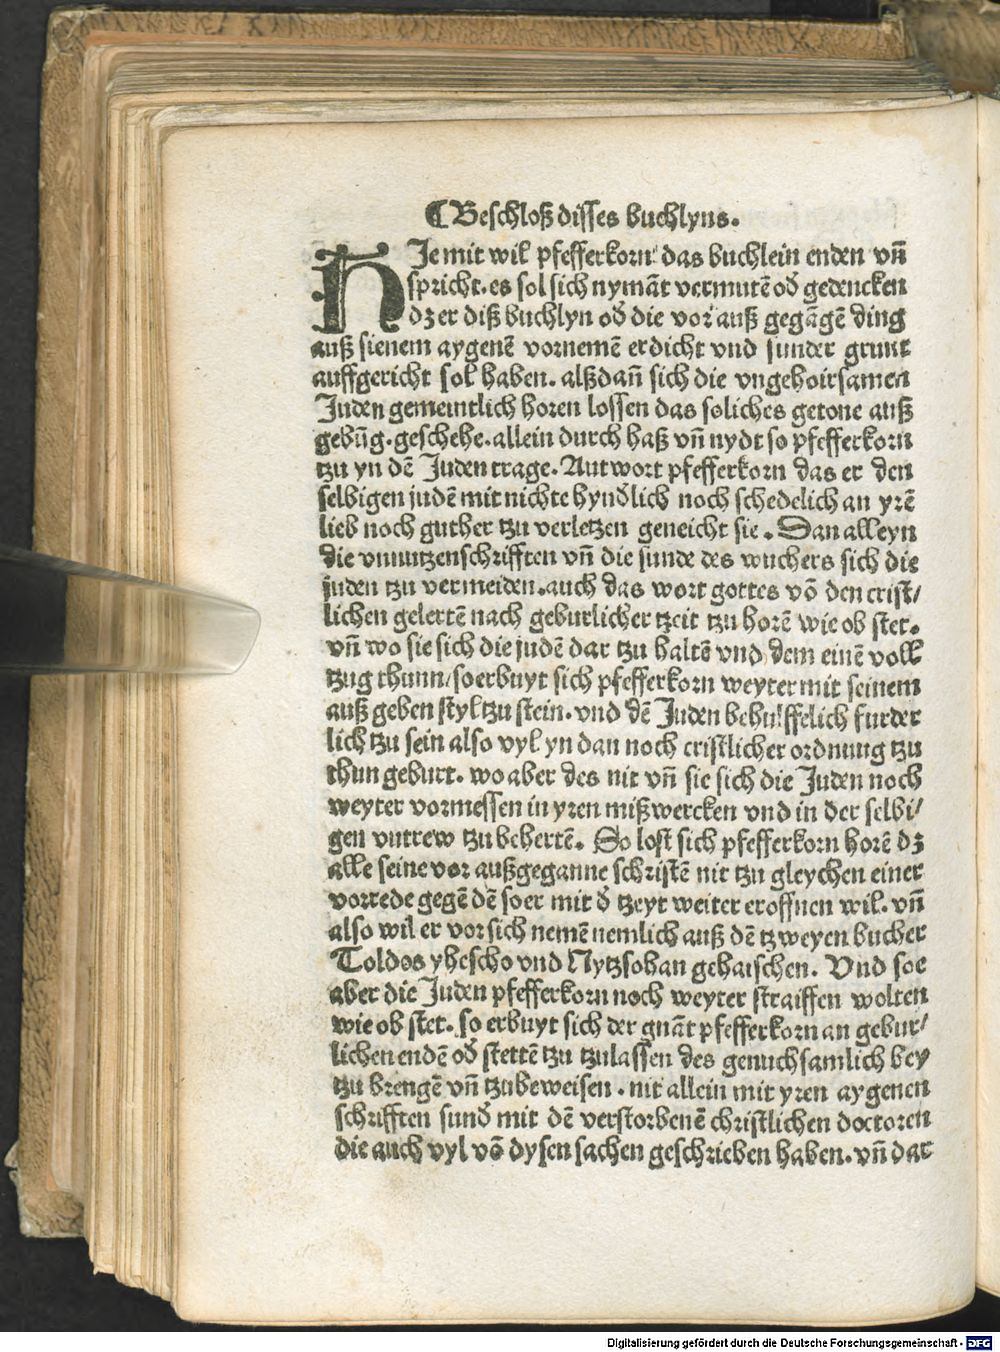 ⸿ Beschloß disses buchlyns.
HJe mit wil pfefferkorn das buchlein enden vñ
spricht. es sol sich nymãt vermutẽ oď gedencken
dz er diß buchlyn oď die vor auß gegãgẽ ding
auß sienem aygenẽ vornemẽ erdicht vnd sunder grunt
auffgericht sol haben. alßdañ sich die vngehoirsamen
Juden gemeintlich horen lossen das soliches getone auß
gebũg. geschehe. allein durch haß vñ nydt so pfefferkorn
tzu yn dẽ Juden trage. Antwort pfefferkorn das er den
selbigen judẽ mit nichte hynďlich noch schedelich an yrẽ
lieb noch guther tzu verletzen geneicht sie. Dan alleyn
die vnnutzenschrifften vñ die sunde des wuchers sich die
juden tzu vermeiden. auch das wort gottes võ den crist/
lichen gelertẽ nach geburlicher tzeit tzu horẽ wie ob stet.
vñ wo sie sich die judẽ dar tzu haltẽ vnd dem einẽ voll
tzug thunn/ so erbuyt sich pfefferkorn weyter mit seinem
auß geben styl tzu stein. vnd dẽ Juden behulffelich furder
lich tzu sein also vyl yn dan noch cristlicher ordnung tzu
thun geburt. wo aber des nit vñ sie sich die Juden noch
weyter vormessen in yren mißwercken vnd in der selbi/
gen vntrew tzu behertẽ. So lost sich pfefferkorn horẽ dz
alle seine vor außgeganne schriftẽ nit tzu gleychen einer
vorrede gegẽ dẽ so er mit ď tzeyt weiter eroffnen wil. vñ
also wil er vor sich nemẽ nemlich auß dẽ tzweyen bucher
Toldos yhescho vnd Nytzsohan gehaischen. Vnd soe
aber die Juden pfefferkorn noch weyter straiffen wolten
wie ob stet. so erbuyt sich der gnãt pfefferkorn an gebur/
lichen endẽ oď stettẽ tzu tzulassen des genuchsamlich bey
tzu brengẽ vñ tzubeweisen. nit allein mit yren aygenen
schrifften sunď mit dẽ verstorbenẽ christlichen doctoren
die auch vyl võ dysen sachen geschrieben haben. vñ dar
Digitalisierung gefördert durch die Deutsche Forschungsgemeinschaft - DFG